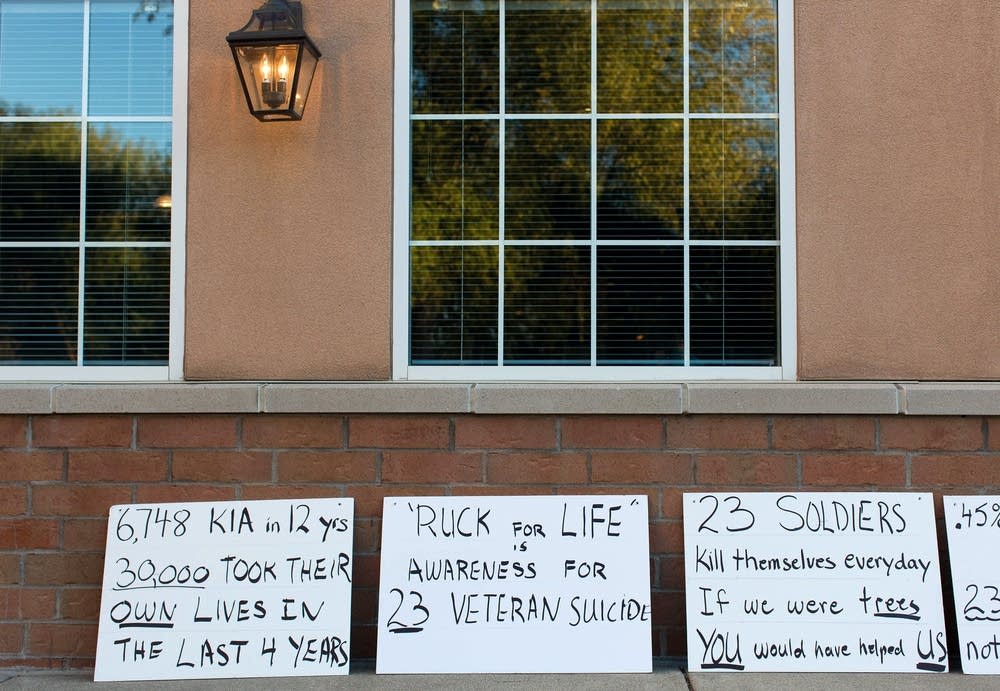 6,748 KIA in 12 yrs
30,000 TOOK THEIR
OWN LIVES IN
THE LAST 4 YEARS
"RUCK FOR LIFE"
is
AWARENESS FOR
23 VETERAN SUICIDE
23 SOLDIERS
Kill themselves everyday
If we were trees
YOU would have helped US
.45%
23
not